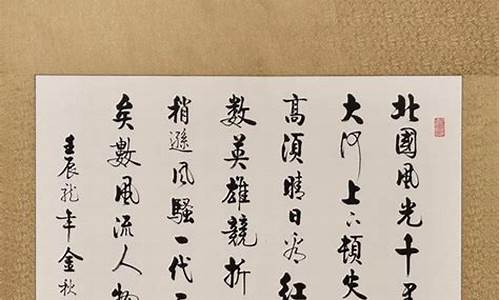 北國風光千里
大河上下頓失
高須晴日看紅
數英雄競折
稍遜風騷一代天
矣數風流人物
壬辰龍年金秋